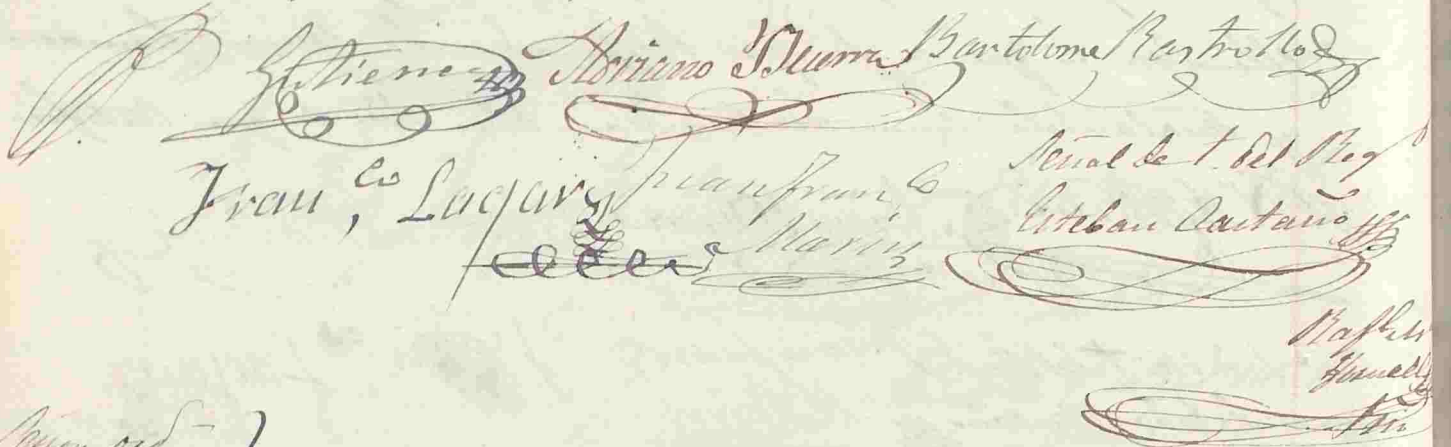 Gutierrez Adriano Becerra Bartolome Rastrollo
Fran,co Lagar Juan Fran,co
Marin
Señal de + del Reg
Esteban Caetaño
Raf.l de